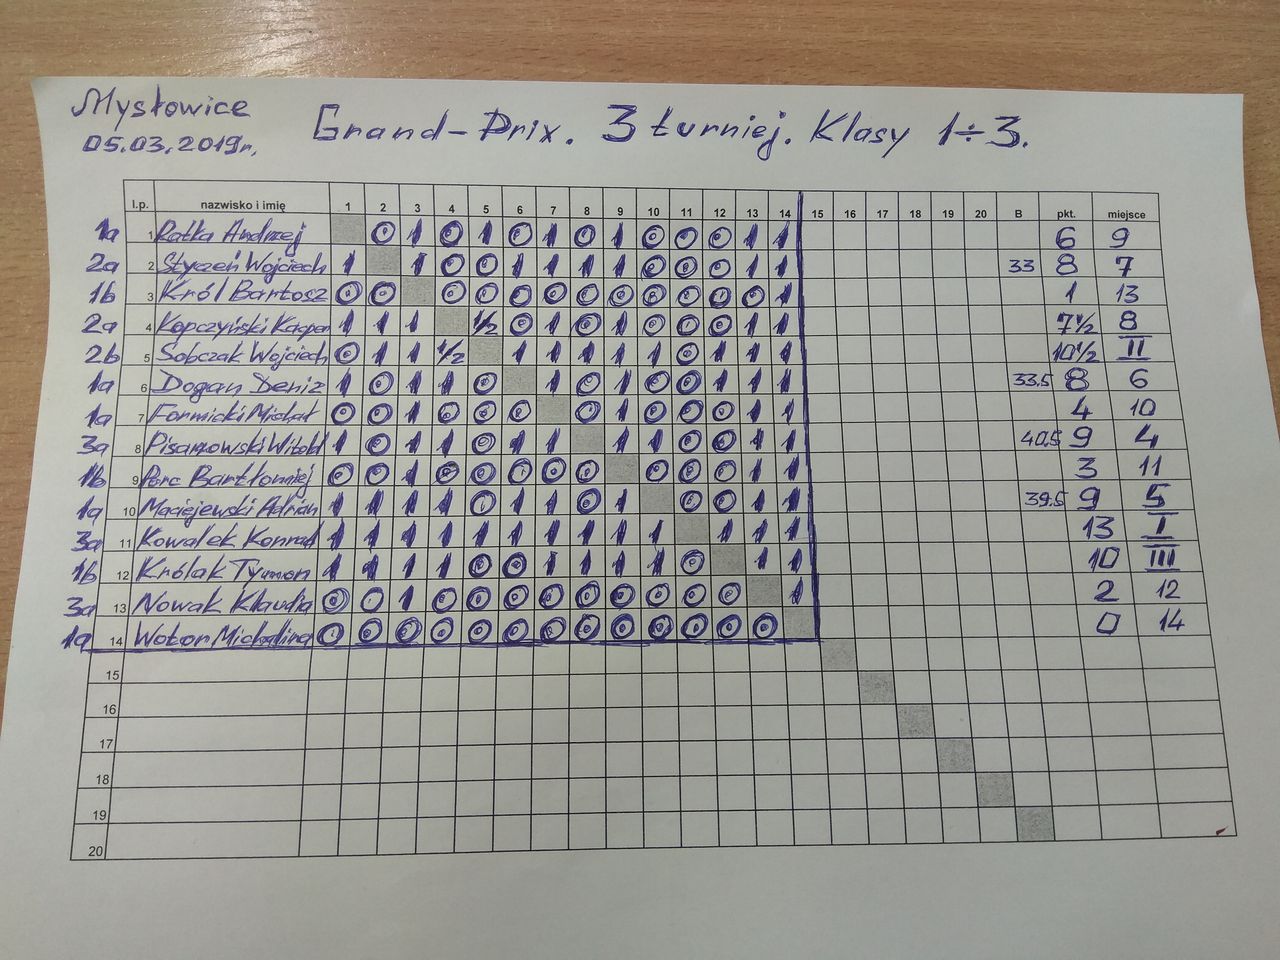 Mysłowice
05.03.2019r.
Grand-Prix. 3 turniej. Klasy 1÷3.
l.p. nazwisko i imię 1 2 3 4 5 6 7 8 9 10 11 12 13 14 15 16 17 18 19 20 B pkt. miejsce
1a 1 Ratka Andrzej 0 1 0 1 0 1 0 1 0 0 0 1 1 6 9
2a 2 Styczeń Wojciech 1 1 0 0 1 1 1 1 0 0 0 1 1 33 8 7
1b 3 Król Bartosz 0 0 0 0 0 0 0 0 0 0 0 0 1 1 13
2a 4 Kopczyński Kacper 1 1 1 1/2 0 1 0 1 0 0 0 1 1 7 1/2 8
2b 5 Sobczak Wojciech 0 1 1 1/2 1 1 1 1 1 0 1 1 1 10 1/2 II
1a 6 Dogan Deniz 1 0 1 1 0 1 0 1 0 0 1 1 1 33.5 8 6
1a 7 Formicki Michał 0 0 1 0 0 0 0 1 0 0 0 1 1 4 10
3a 8 Pisarzowski Witold 1 0 1 1 0 1 1 1 1 0 0 1 1 40.5 9 4
1b 9 Porc Bartłomiej 0 0 1 0 0 0 0 0 0 0 0 1 1 3 11
1a 10 Maciejewski Adrian 1 1 1 1 0 1 1 0 1 0 0 1 1 39.5 9 5
3a 11 Kowalek Konrad 1 1 1 1 1 1 1 1 1 1 1 1 1 13 I
1b 12 Królak Tymon 1 1 1 1 0 0 1 1 1 1 0 1 1 10 III
3a 13 Nowak Klaudia 0 0 1 0 0 0 0 0 0 0 0 0 1 2 12
1a 14 Wobor Michalina 0 0 0 0 0 0 0 0 0 0 0 0 0 0 14
15
16
17
18
19
20